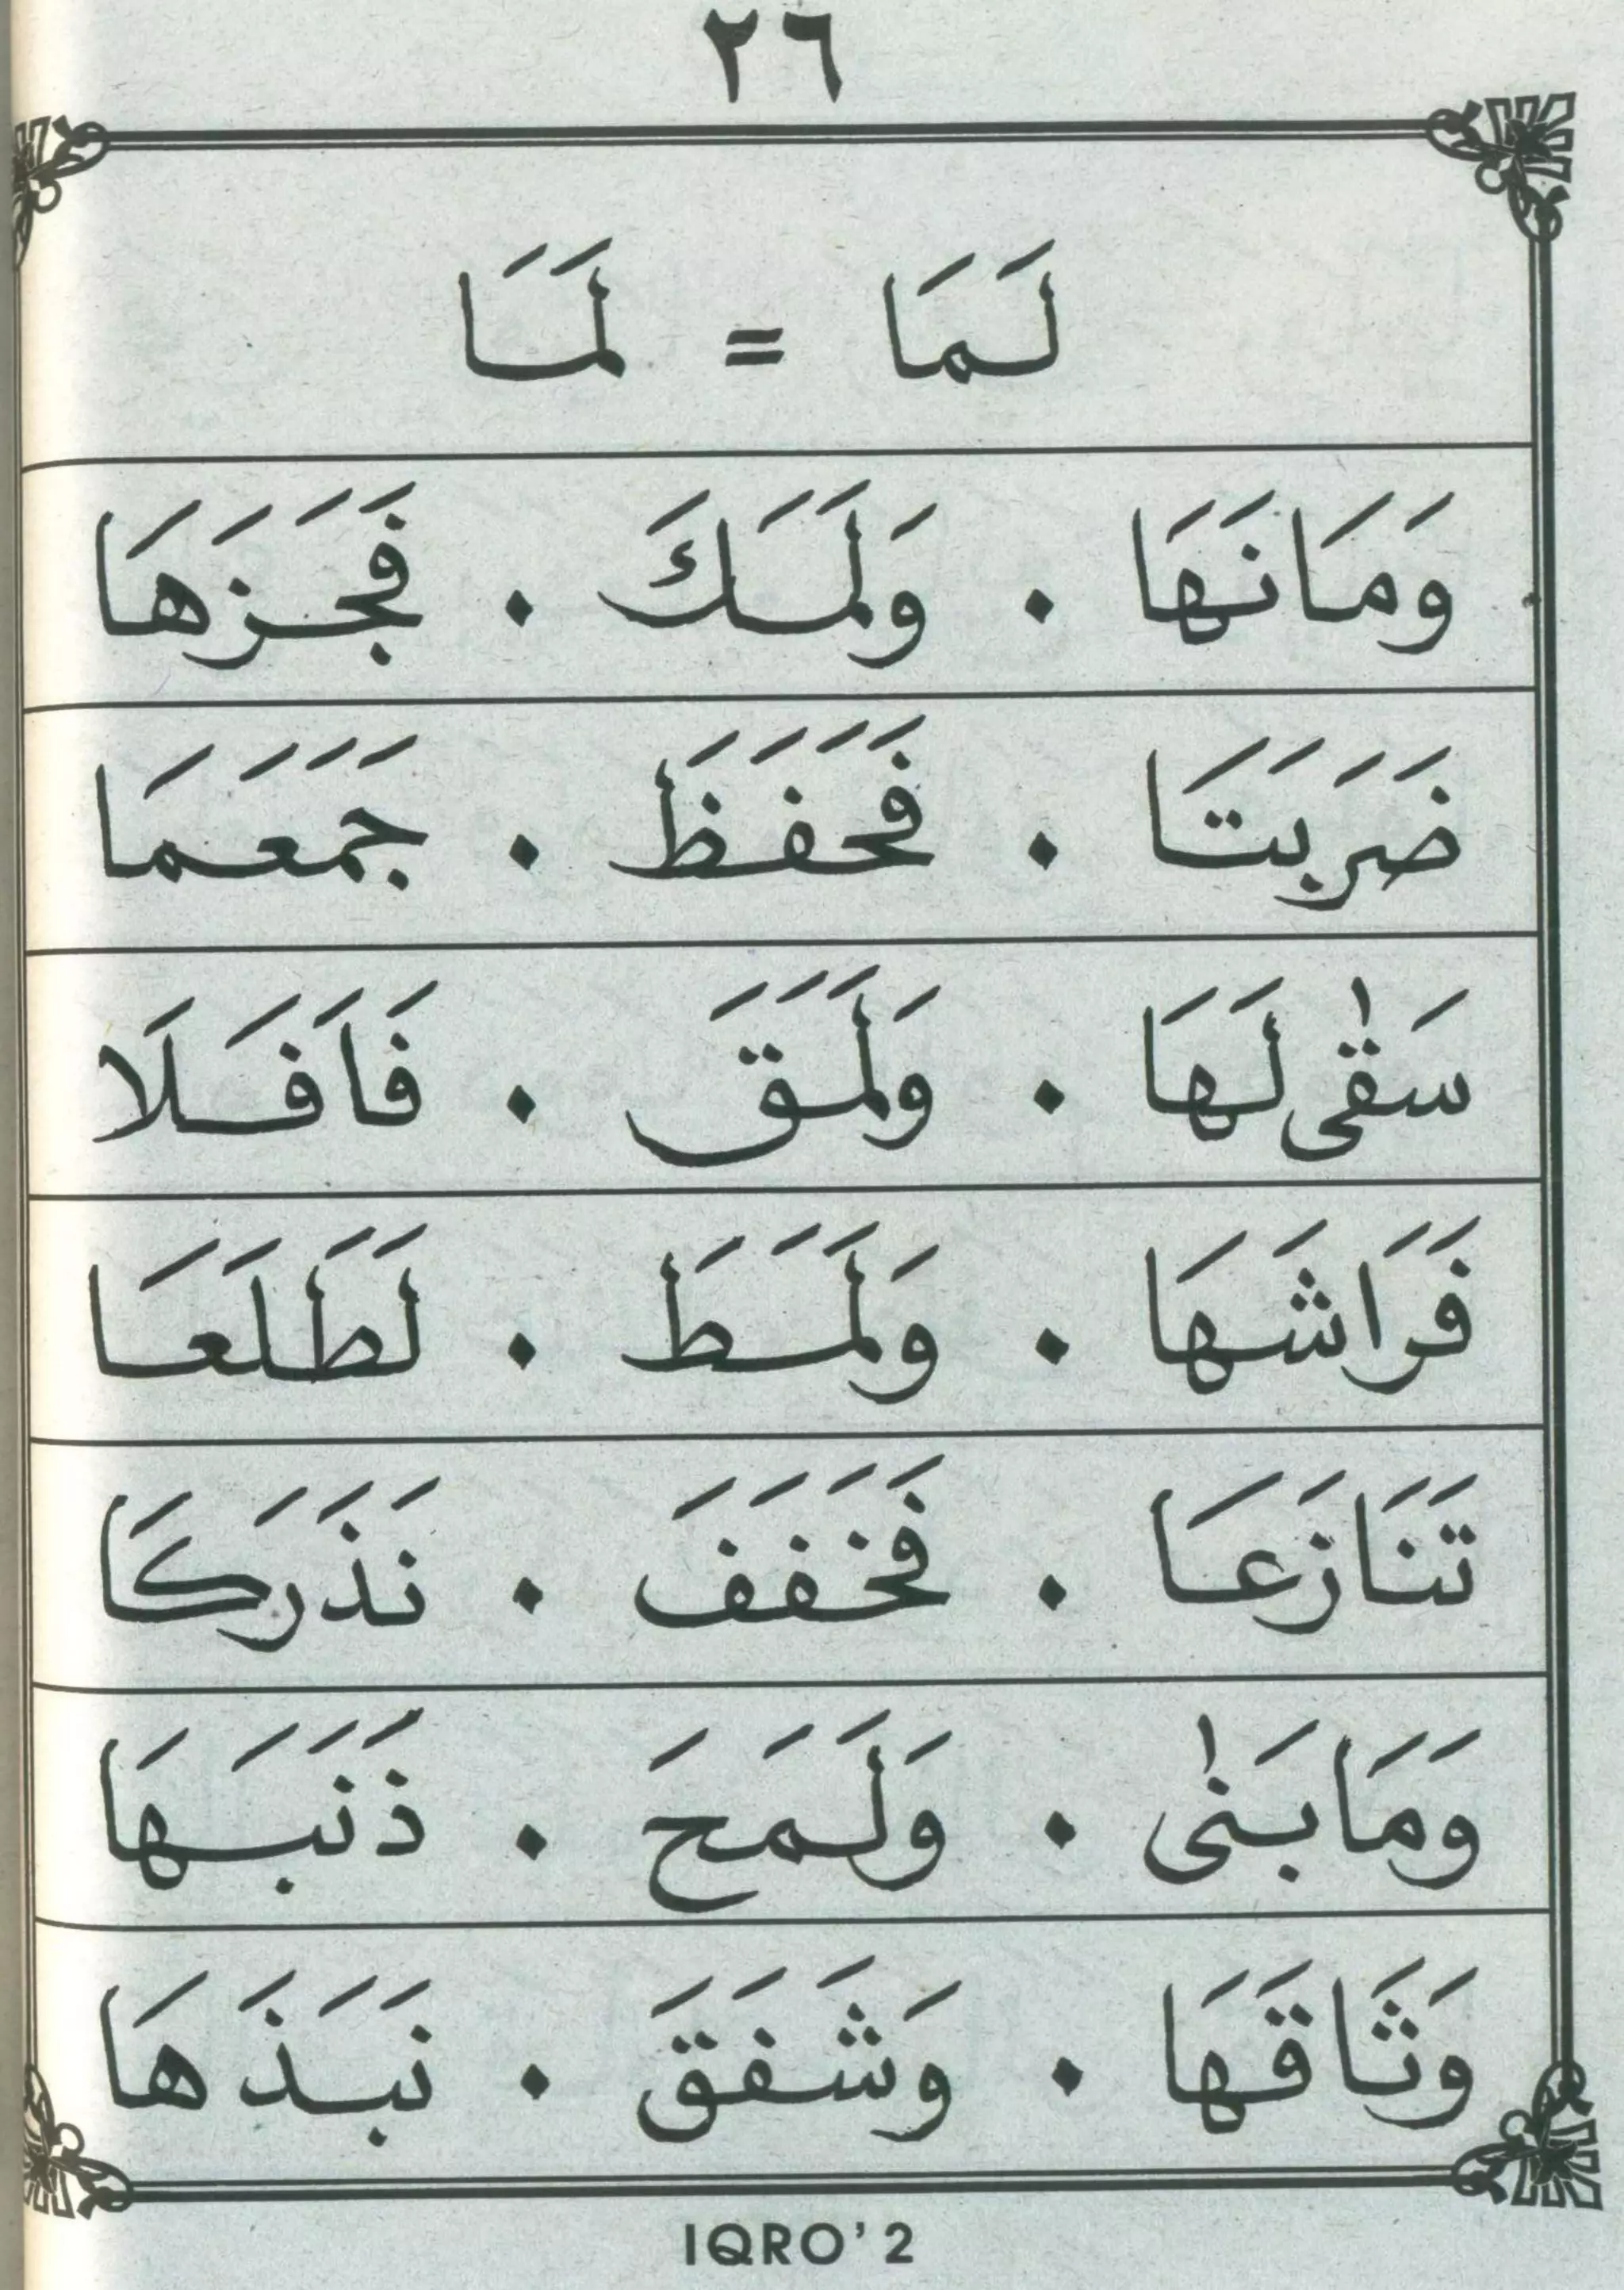 ٢٦
لَمَا = لَمَا
وَمَانَهَا . وَلَمَكَ . فَجَزَهَا
ضَرَبَتَا . فَحَفَظَ . جَمَعَمَا
سَقٰى لَهَا . وَلَمَقَ . فَافَلَا
فَرَاشَهَا . وَلَمَطَ . لَطَلَعَا
تَنَازَعَا . فَخَفَفَ . نَذَرَكَا
وَمَابَنٰى . وَلَمَحَ . ذَنَبَهَا
وَثَاقَهَا . وَشَفَقَ . نَبَذَهَا
IQRO' 2